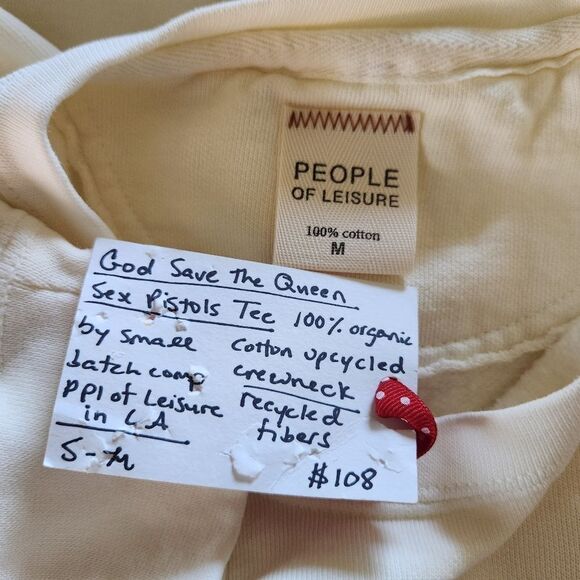 PEOPLE
OF LEISURE
100% cotton
M
God Save The Queen
Sex Pistols Tee
by small
batch comp
ppl of Leisure
in LA
S-M
100% organic
cotton upcycled
crewneck
recycled
fibers
$108